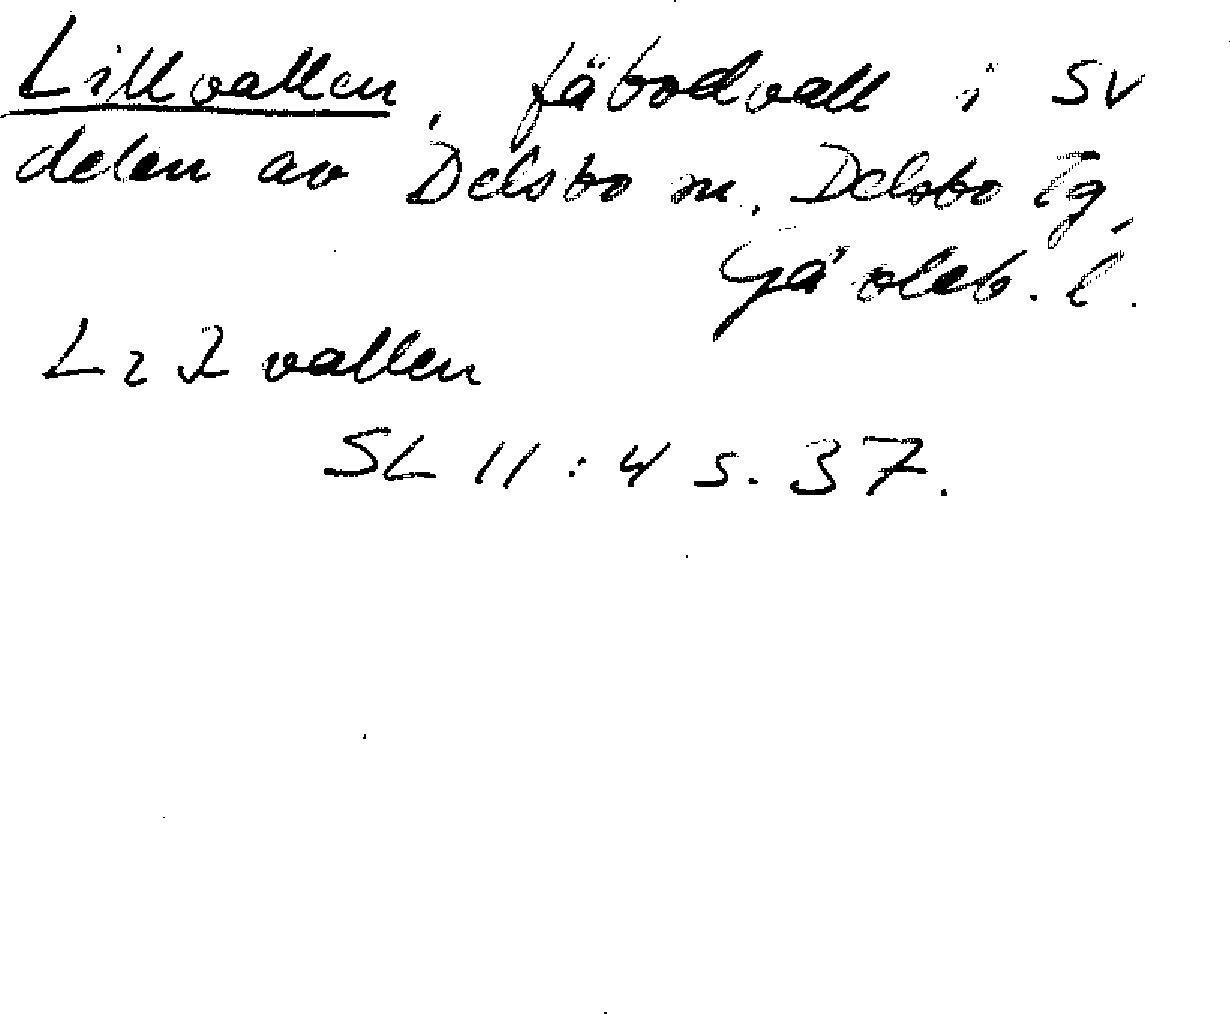 Lillvallen, fäbodvall i SV
delen av Delsbo sn. Delsbo tg,
Gävleb. l.
vallen
SL 11:4 s. 37.